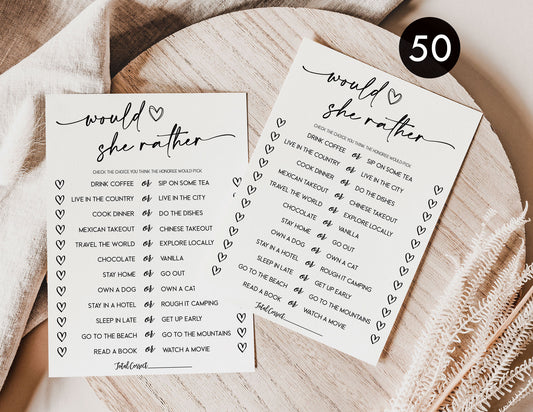 50
would
she rather
CHECK THE CHOICE YOU THINK THE HONOREE WOULD PICK
DRINK COFFEE or SIP ON SOME TEA
LIVE IN THE COUNTRY or LIVE IN THE CITY
COOK DINNER or DO THE DISHES
MEXICAN TAKEOUT or CHINESE TAKEOUT
TRAVEL THE WORLD or EXPLORE LOCALLY
CHOCOLATE or VANILLA
STAY HOME or GO OUT
OWN A DOG or OWN A CAT
STAY IN A HOTEL or ROUGH IT CAMPING
SLEEP IN LATE or GET UP EARLY
GO TO THE BEACH or GO TO THE MOUNTAINS
READ A BOOK or WATCH A MOVIE
Total Correct
would
she rather
CHECK THE CHOICE YOU THINK THE HONOREE WOULD PICK
DRINK COFFEE or SIP ON SOME TEA
LIVE IN THE COUNTRY or LIVE IN THE CITY
COOK DINNER or DO THE DISHES
MEXICAN TAKEOUT or CHINESE TAKEOUT
TRAVEL THE WORLD or EXPLORE LOCALLY
CHOCOLATE or VANILLA
STAY HOME or GO OUT
OWN A DOG or OWN A CAT
STAY IN A HOTEL or ROUGH IT CAMPING
SLEEP IN LATE or GET UP EARLY
GO TO THE BEACH or GO TO THE MOUNTAINS
READ A BOOK or WATCH A MOVIE
Total Correct